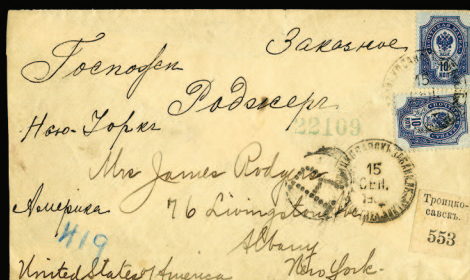 Заказное
Госпожи
Роджерс
Нью-Іоркъ
22109
Mrs James Rodgers
Америка
76 Livingston Ave
Albany
#19
United States of America
New York.
10
КОП
10
КОП
15
15
СЕН.
Троицко-
савскъ.
553